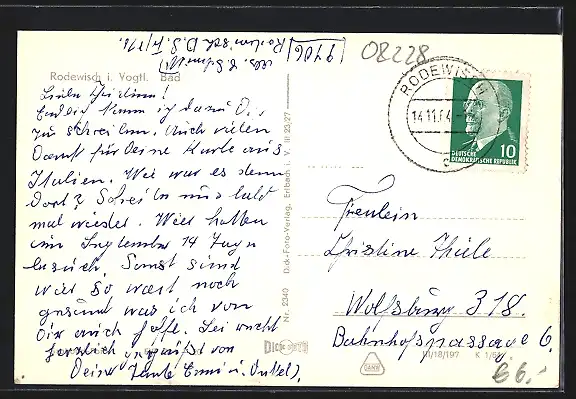 08228
(9706) Rodewisch D.S.F. 171.
Rodewisch i. Vogtl. Bad
Liebe Christine!
Endlich komm ich dazu Dir
zu schreiben. Auch vielen
Dank für Deine Karte aus
Italien. Wie war es denn
dort? Schreib uns bald
mal wieder. Wir hatten
im September 14 Tage
besuch. Sonst sind
wir so weit noch
gesund was ich von
Dir auch hoffe. Sei recht
herzlich gegrüßt von
Deine Tante Emmi u. Onkel
Nr. 2340 Dick-Foto-Verlag, Erlbach i. V. III 23/27
DICK
RODEWISCH
14.11.64
c
10
DEUTSCHE
DEMOKRATISCHE REPUBLIK
Fräulein
Christine Thiele
Wolfsburg 318.
Bahnhofspassage 6.
III/18/197 K 1/64
6.-